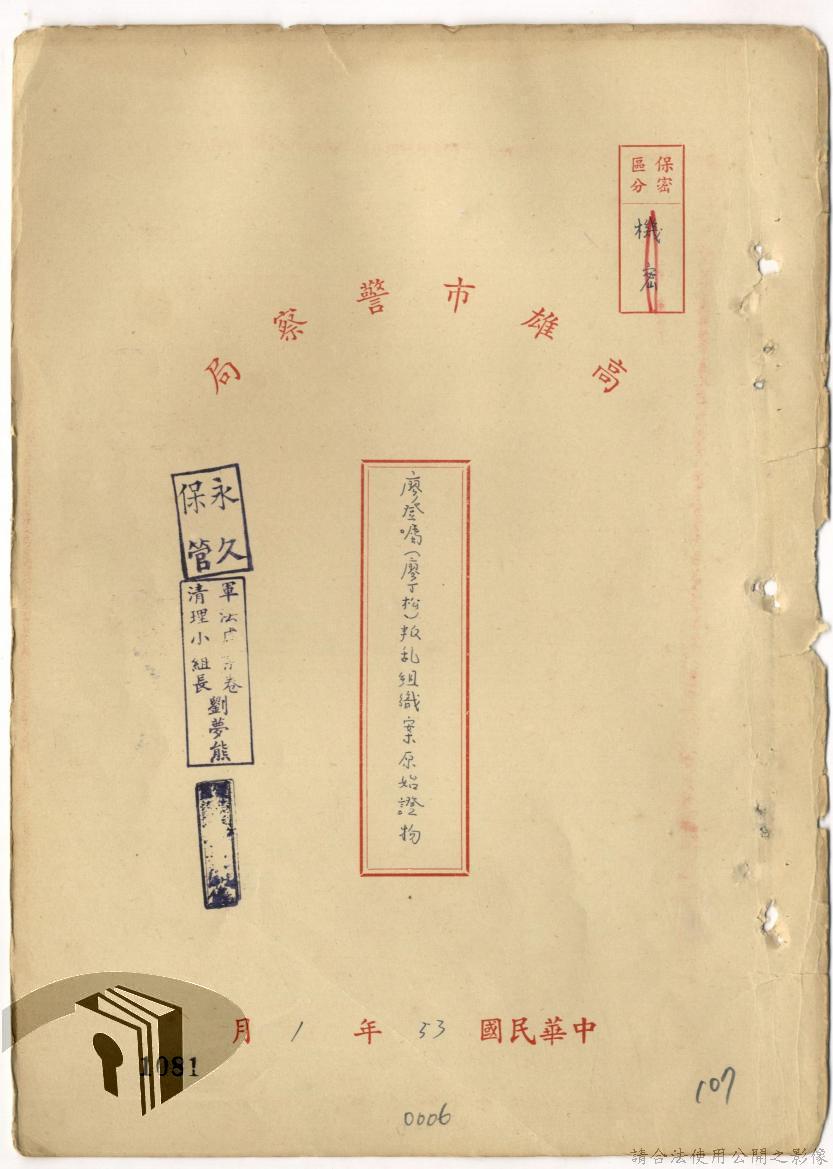 保密
區分
機密
高雄市警察局
廖登嘱(廖丁松)叛乱組織案原始證物
永久
保管
軍法 卷
清理小組長
劉夢熊
中華民國53年1月
1081
107
0006
請合法使用公開之影像